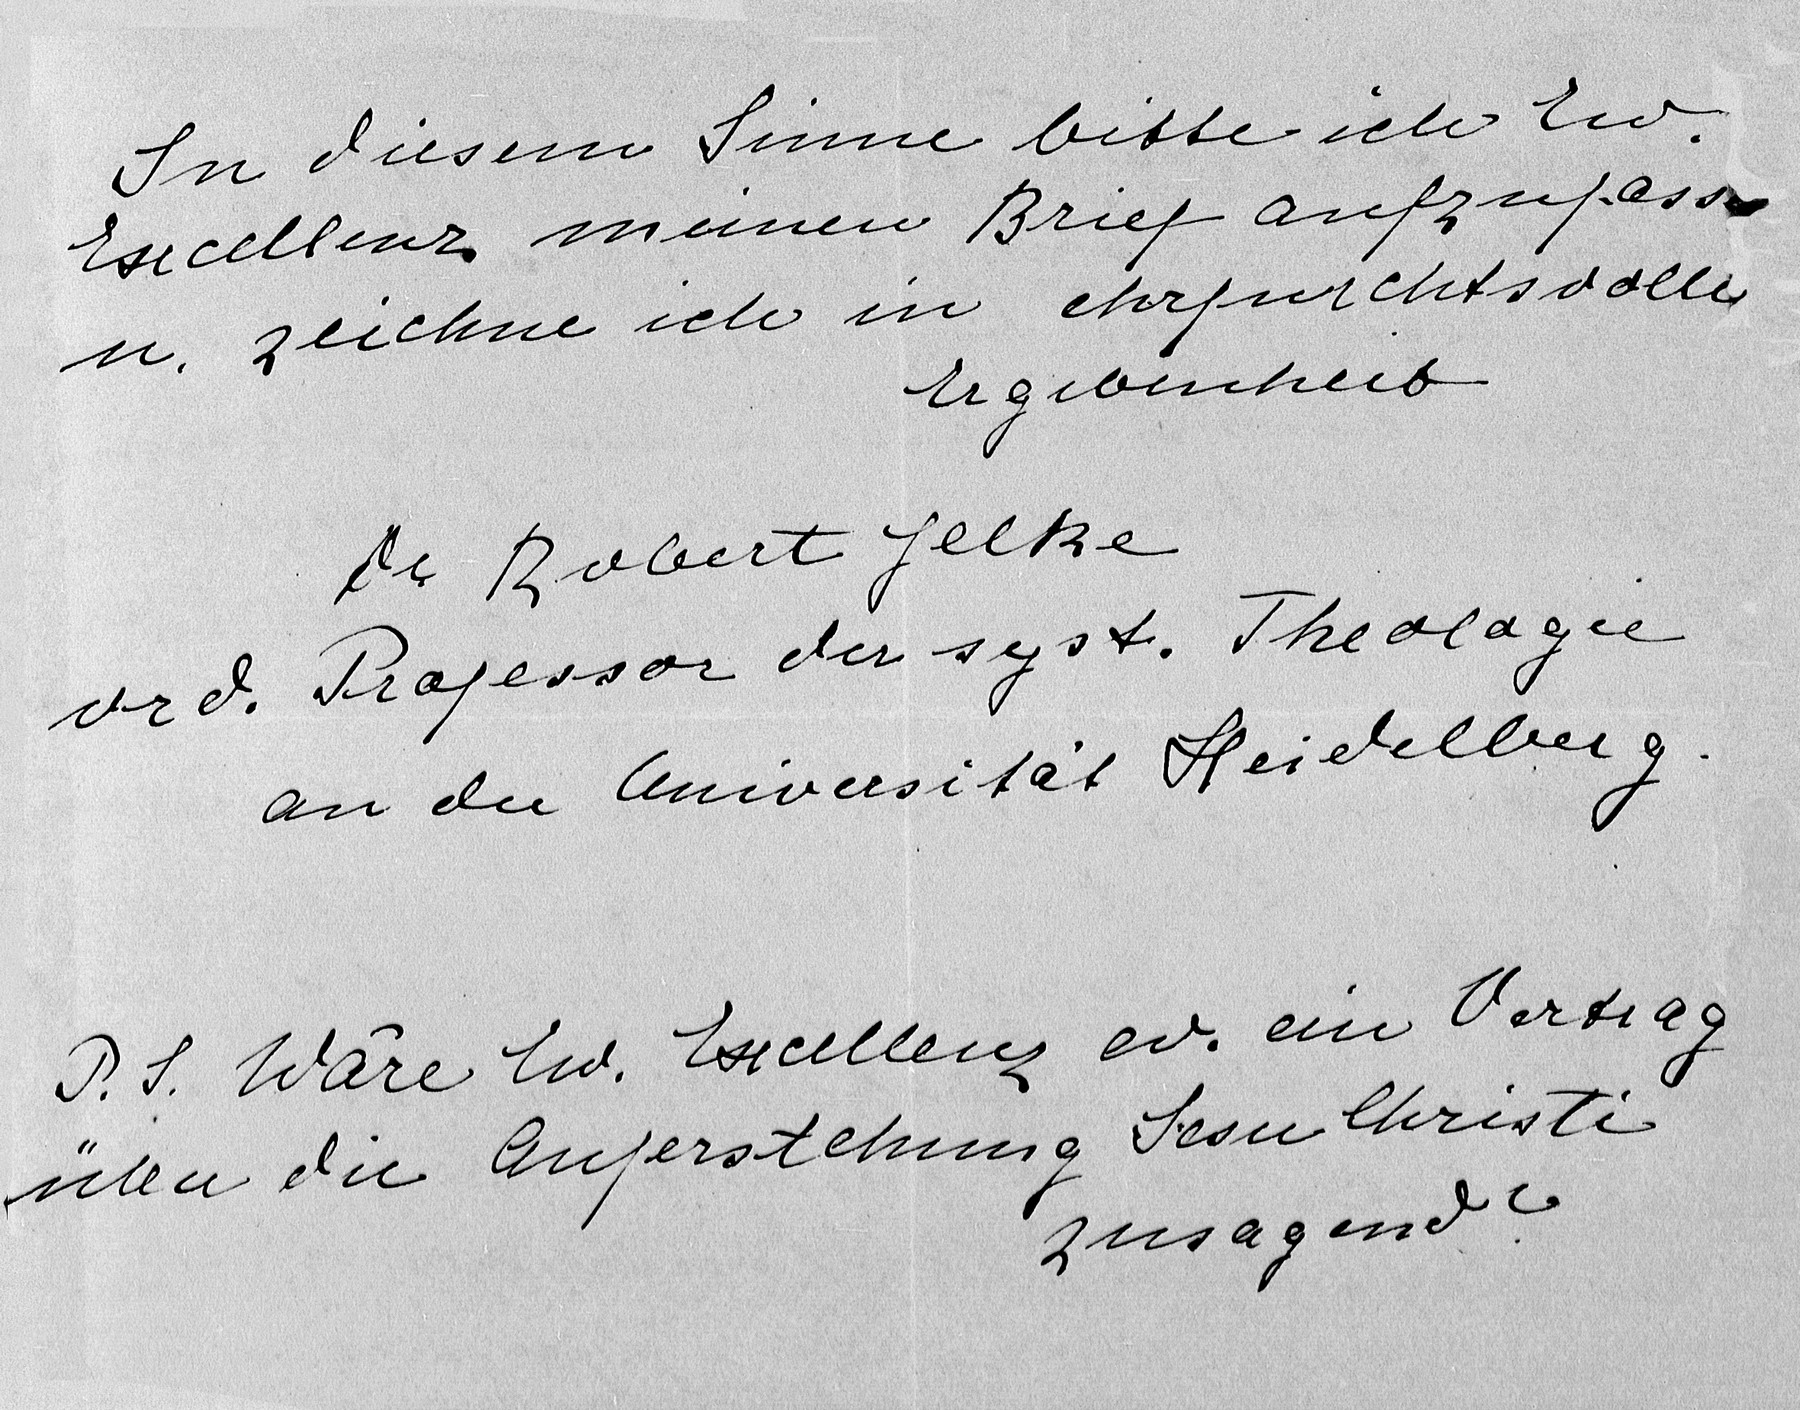 In diesem Sinne bitte ich Ew.
Excellenz meinen Brief aufzufassen
u. zeichne ich in ehrfurchtsvoller
Ergebenheit
Dr Robert Jelke
ord. Professor der syst. Theologie
an der Universität Heidelberg.
P.S. Wäre Ew. Excellenz ev. ein Vortrag
über die Auferstehung Jesu Christi
zusagend?